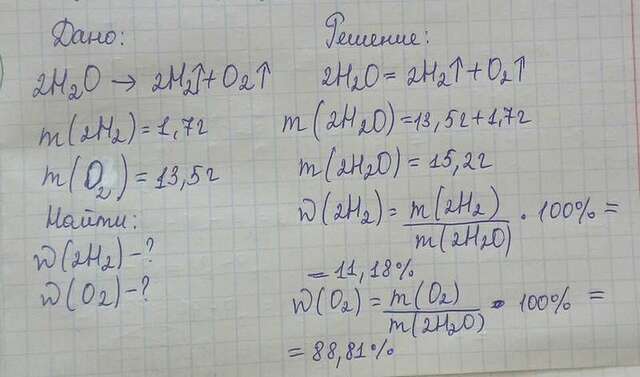 Дано:
2H₂O → 2H₂↑+O₂↑
m(2H₂)=1,7г
m(O₂)=13,5г
Найти:
W(2H₂)-?
W(O₂)-?
Решение:
2H₂O=2H₂↑+O₂↑
m(2H₂O)=13,5г+1,7г
m(2H₂O)=15,2г
W(2H₂)=m(2H₂)/m(2H₂O) · 100%=
=11,18%
W(O₂)=m(O₂)/m(2H₂O) · 100%=
=88,81%